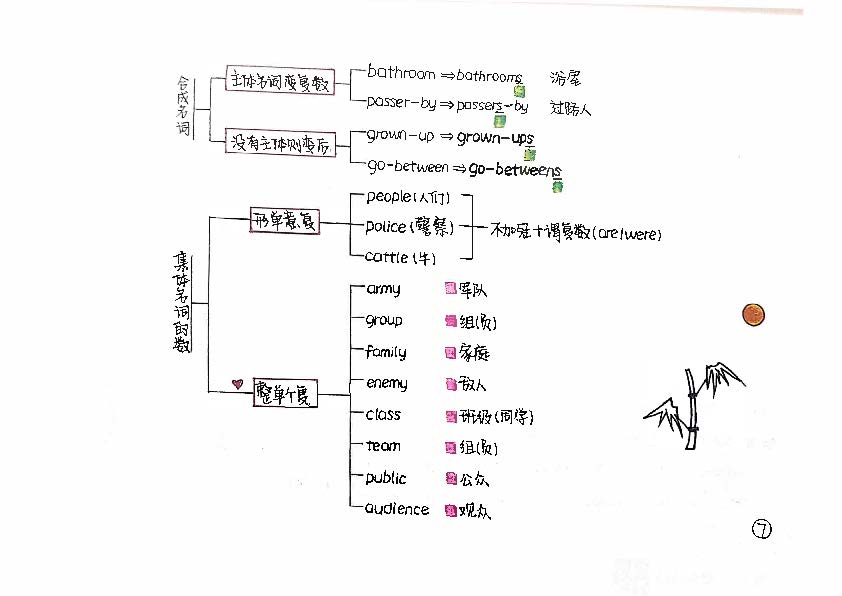 合成名词
主体名词变复数
bathroom ⇒ bathrooms 浴屋
passer-by ⇒ passers-by 过路人
没有主体则变后
grown-up ⇒ grown-ups
go-between ⇒ go-betweens
集体名词的数
形单意复
people (人们)
police (警察)
cattle (牛)
不加冠+谓复数(are/were)
整单个复
army 军队
group 组(员)
family 家庭
enemy 敌人
class 班级(同学)
team 组(员)
public 公众
audience 观众
7